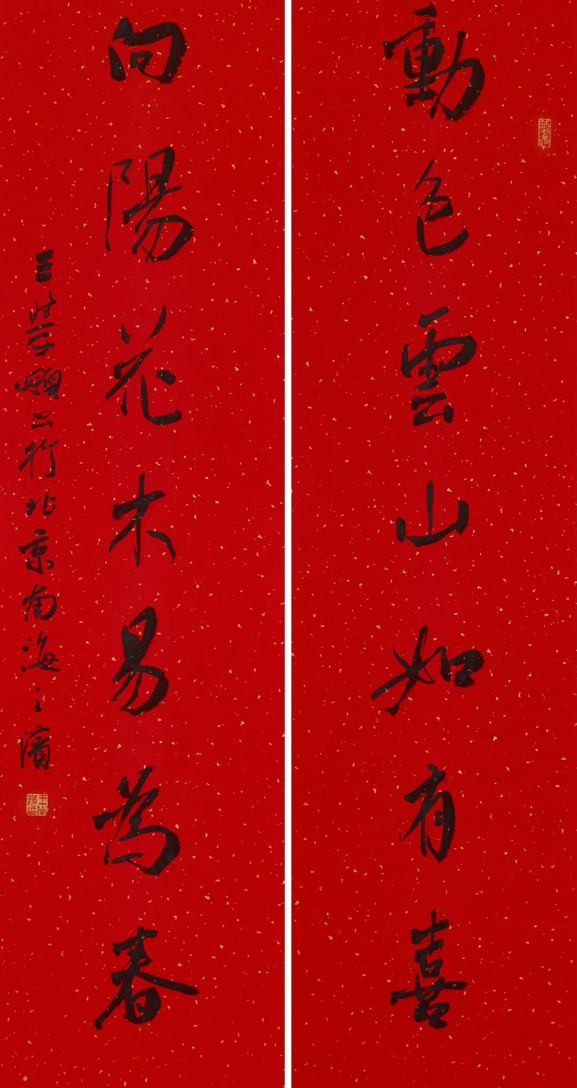 動色雲山如有喜
向陽花木易為春
王學嶺書於北京南海之濱